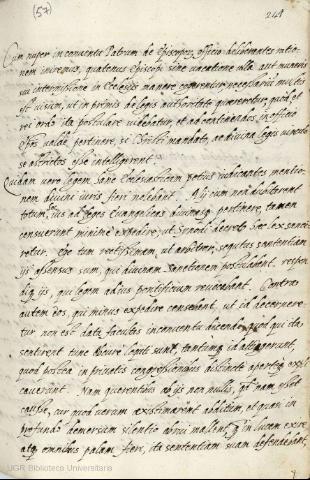 (57)
249
Cum nuper in conventu Patrum de Episcoporum officio deliberantes ratio-
nem iniremus, quatenus Episcopi sine vacatione ulla aut muneris
sui intermissione in Ecclesijs manere cogerentur necessarium multis
est visum, ut in primis de legis authoritate quereretur, quod et
rei ratio ita postulare videretur, et ad continendos in officio
Ep̃os valde pertinere, se Christi mandato, ac divinæ legis vinculo
se astrictos esse intelligerent.
Quidam vero legem sane Ecclesiasticam potius iudicantes mentio-
nem divini iuris fieri nolebant. Alij cum non dubitarent
totum ius ad leges Evangelicas divinasq. pertinere, tamen
censuerunt minime expedire, ut Synodi decreto hec lex sanci-
retur. Ego tum rectissimam, ut arbitror, sequutus sententiam
ijs assensus sum, qui divinam sanctionem postulabant, respon-
diq. ijs, qui legem ad ius pontificium revocabant. Contra
autem eos, qui minus expedire censebant, ut id decerne-
retur non est data facultas in conventu dicendi, quod qui ita
sentirent tunc locuti sunt, tantumq. id attigerunt,
quod postea in privatis congressionibus distincte aperteq. expli-
caverunt. Nam querentibus ab ijs non nullis, quae nam esset
causa, cur quod verum existimarent abditum, et quasi in
profundo demersum silentio obrui mallent, quam in lucem exire
atq. omnibus palam fieri, ita sententiam suam defendebant,
UGR Biblioteca Universitaria